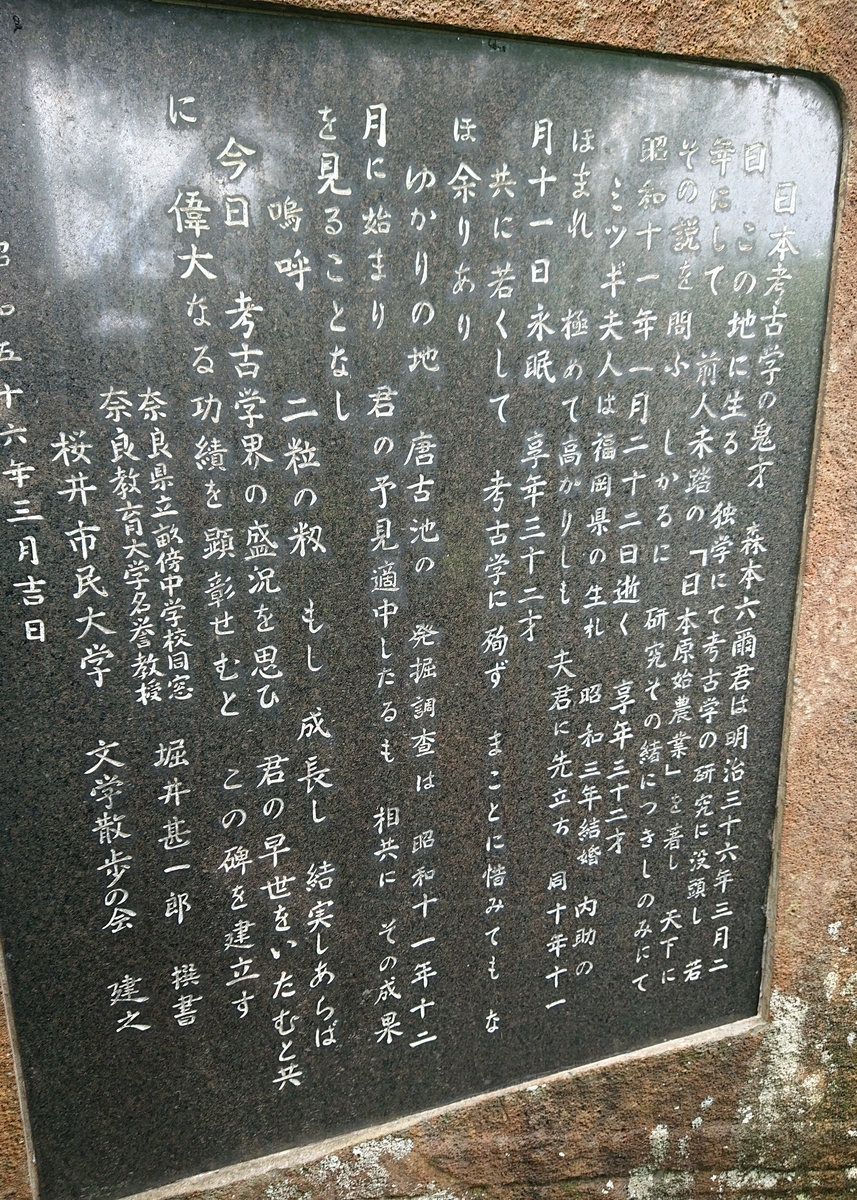 日本考古学の鬼才 森本六爾君は明治三十六年三月二
日 この地に生る 独学にて考古学の研究に没頭し 若
年にして 前人未踏の「日本原始農業」を著し 天下に
その説を問ふ しかるに 研究その緒につきしのみにて
昭和十一年一月二十二日逝く 享年三十二才
ミツギ夫人は福岡県の生れ 昭和三年結婚 内助の
ほまれ 極めて高かりしも 夫君に先立ち 同十年十一
月十一日永眠 享年三十二才
共に若くして 考古学に殉ず まことに惜みても な
ほ余りあり
ゆかりの地 唐古池の 発掘調査は 昭和十一年十二
月に始まり 君の予見適中したるも 相共に その成果
を見ることなし
嗚呼 二粒の籾 もし 成長し 結実しあらば
今日 考古学界の盛況を思ひ 君の早世をいたむと共
に 偉大なる功績を顕彰せむと この碑を建立す
奈良県立畝傍中学校同窓
奈良教育大学名誉教授 堀井甚一郎 撰書
桜井市民大学 文学散歩の会 建之
昭和五十六年三月吉日